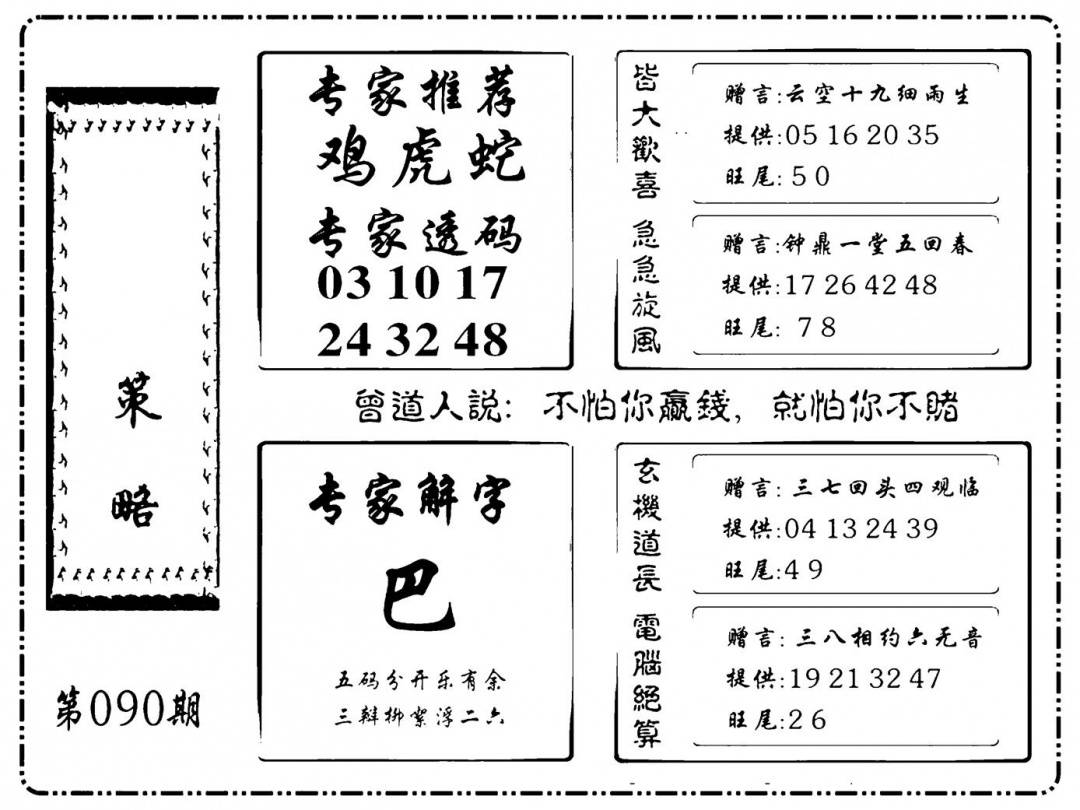 策略
第090期
专家推荐
鸡虎蛇
专家透码
03 10 17
24 32 48
皆大歡喜
赠言:云空十九细雨生
提供:05 16 20 35
旺尾:50
急急旋風
赠言:钟鼎一堂五回春
提供:17 26 42 48
旺尾: 78
曾道人説: 不怕你贏錢, 就怕你不賭
专家解字
巴
五码分开乐有余
三辩柳絮浮二六
玄機道長
赠言:三七回头四观临
提供:04 13 24 39
旺尾:49
電腦絕算
赠言:三八相约六无音
提供:19 21 32 47
旺尾:26